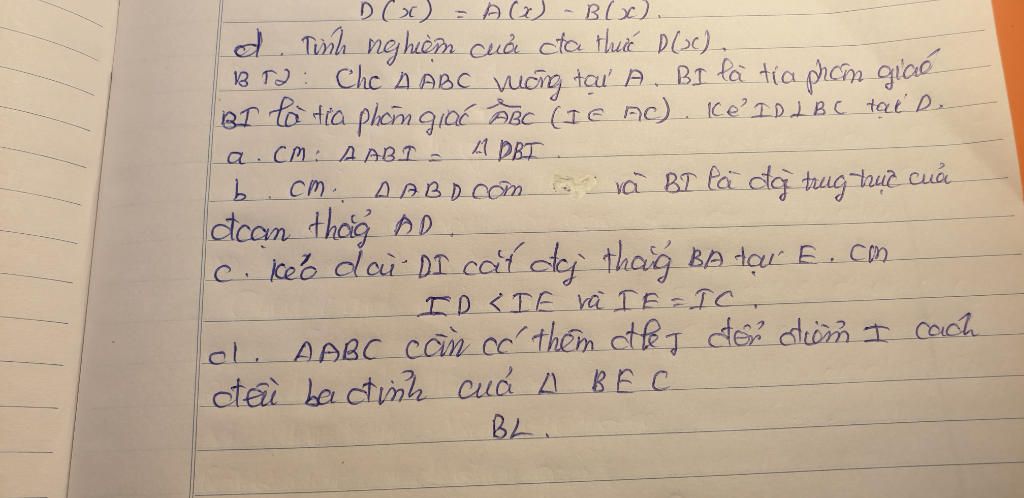 D(x) = A(x) - B(x).
d. Tính nghiệm của đa thức D(x).
BT2: Cho ΔABC vuông tại A. BI là tia phân giác
BI là tia phân giác ABC (I ∈ AC). Kẻ ID⊥BC tại D.
a. CM: ΔABI = ΔDBI.
b. CM: ΔABD cân và BI là đg trung trực của
đoạn thẳg AD.
c. Kéo dài DI cắt đg thẳg BA tại E. CM
ID < IE và IE = IC.
d. ΔABC cần có thêm đk j để điểm I cách
đều ba đỉnh của Δ BEC
BL.